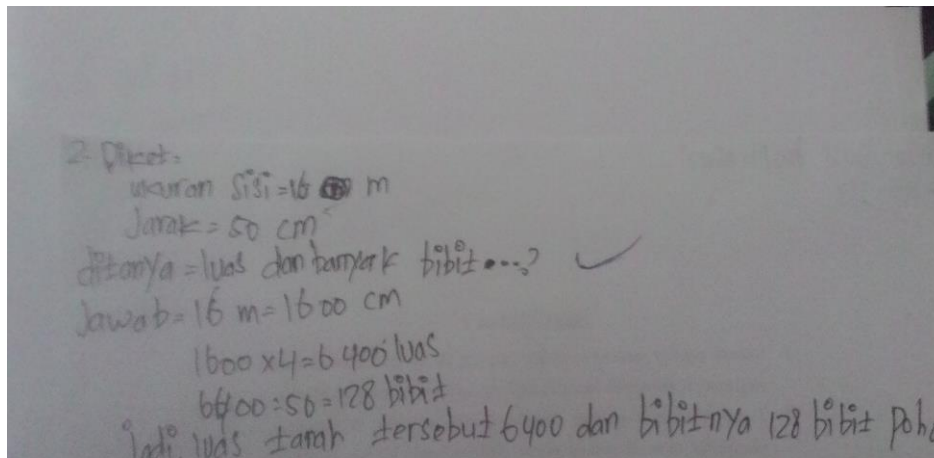 2. Diket:
ukuran sisi = 16 m
Jarak = 50 cm
ditanya = luas dan banyak bibit....?
Jawab = 16 m = 1600 cm
1600 x 4 = 6400 luas
6400 : 50 = 128 bibit
jadi luas tanah tersebut 6400 dan bibitnya 128 bibit